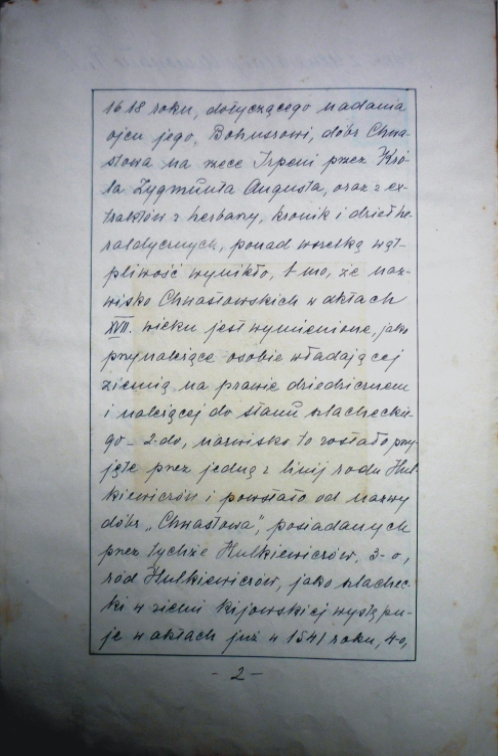 1618 roku, dotyczącego nadania
ojcu jego, Bohuszowi, dóbr Chwa-
stowa na rzece Irpeni przez Kró-
la Zygmunta Augusta, oraz z ex-
traktów z herbarzy, kronik i dzieł he-
raldycznych, ponad wszelką wąt-
pliwość wynikło, 1-mo, że naz-
wisko Chwastowskich w aktach
XVII. wieku jest wymienione, jako
przynależące osobie władającej
ziemią na prawie dziedzicznem
i należącej do stanu szlacheckie-
go - 2-do, nazwisko to zostało przy-
jęte przez jedną z linij rodu Hul-
kiewiczów i powstało od nazwy
dóbr „Chwastowa", posiadanych
przez tychże Hulkiewiczów, 3-o,
ród Hulkiewiczów, jako szlachec-
ki w ziemi kijowskiej występu-
je w aktach już w 1541 roku, 4-o,
- 2 -